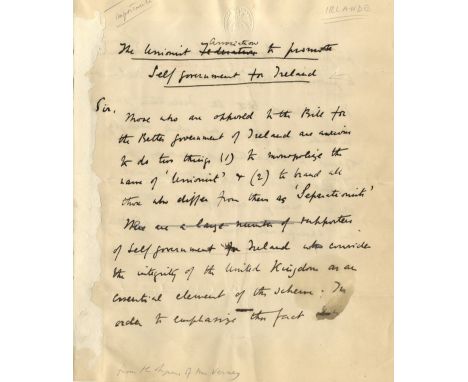 IRLANDE
Association
The Unionist Federation to promote
Self government for Ireland
Sir,
Those who are opposed to the Bill for
the Better government of Ireland are anxious
to do two things (1) to monopolize the
name of 'Unionist' & (2) to brand all
those who differ from them as 'Separationists'
There are a large number of supporters
of Self government for Ireland who consider
the integrity of the United Kingdom as an
essential element of the scheme. In
order to emphasize this fact
from the house of Mr Verney